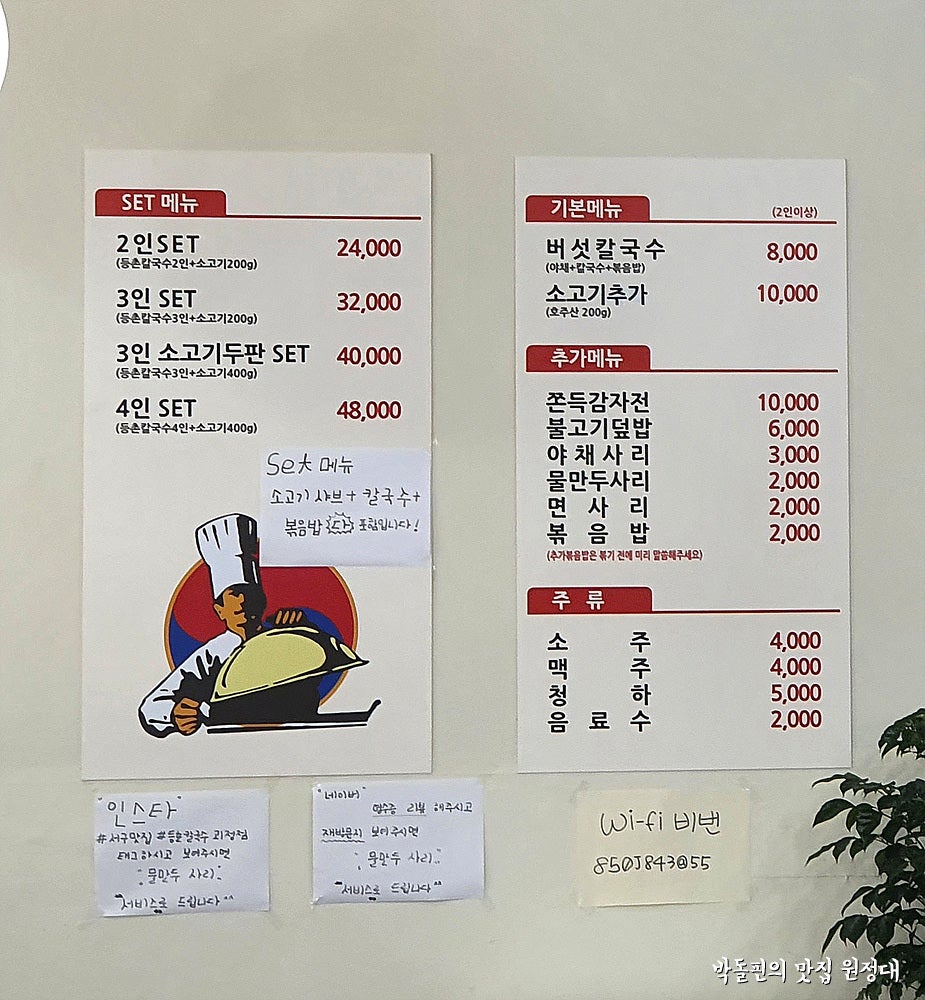 SET 메뉴
2인SET 24,000
(등촌칼국수2인+소고기200g)
3인 SET 32,000
(등촌칼국수3인+소고기200g)
3인 소고기두판 SET 40,000
(등촌칼국수3인+소고기400g)
4인 SET 48,000
(등촌칼국수4인+소고기400g)
Set 메뉴
소고기 샤브+ 칼국수+
볶음밥 다 포함입니다!
기본메뉴 (2인이상)
버섯칼국수 8,000
(야채+칼국수+볶음밥)
소고기추가 10,000
(호주산 200g)
추가메뉴
쫀득감자전 10,000
불고기덮밥 6,000
야채사리 3,000
물만두사리 2,000
면사리 2,000
볶음밥 2,000
(추가볶음밥은 볶기 전에 미리 말씀해주세요)
주류
소주 4,000
맥주 4,000
청하 5,000
음료수 2,000
"인스타"
#서구맛집 #등촌칼국수 괴정점
태그하시고 보여주시면
"물만두 사리"
"서비스로 드립니다^^
"네이버"
영수증 리뷰 해주시고
재방문지 보여주시면
"물만두 사리"
"서비스로 드립니다^^
Wi-fi 비번
850J843@55
박돌핀의 맛집 원정대